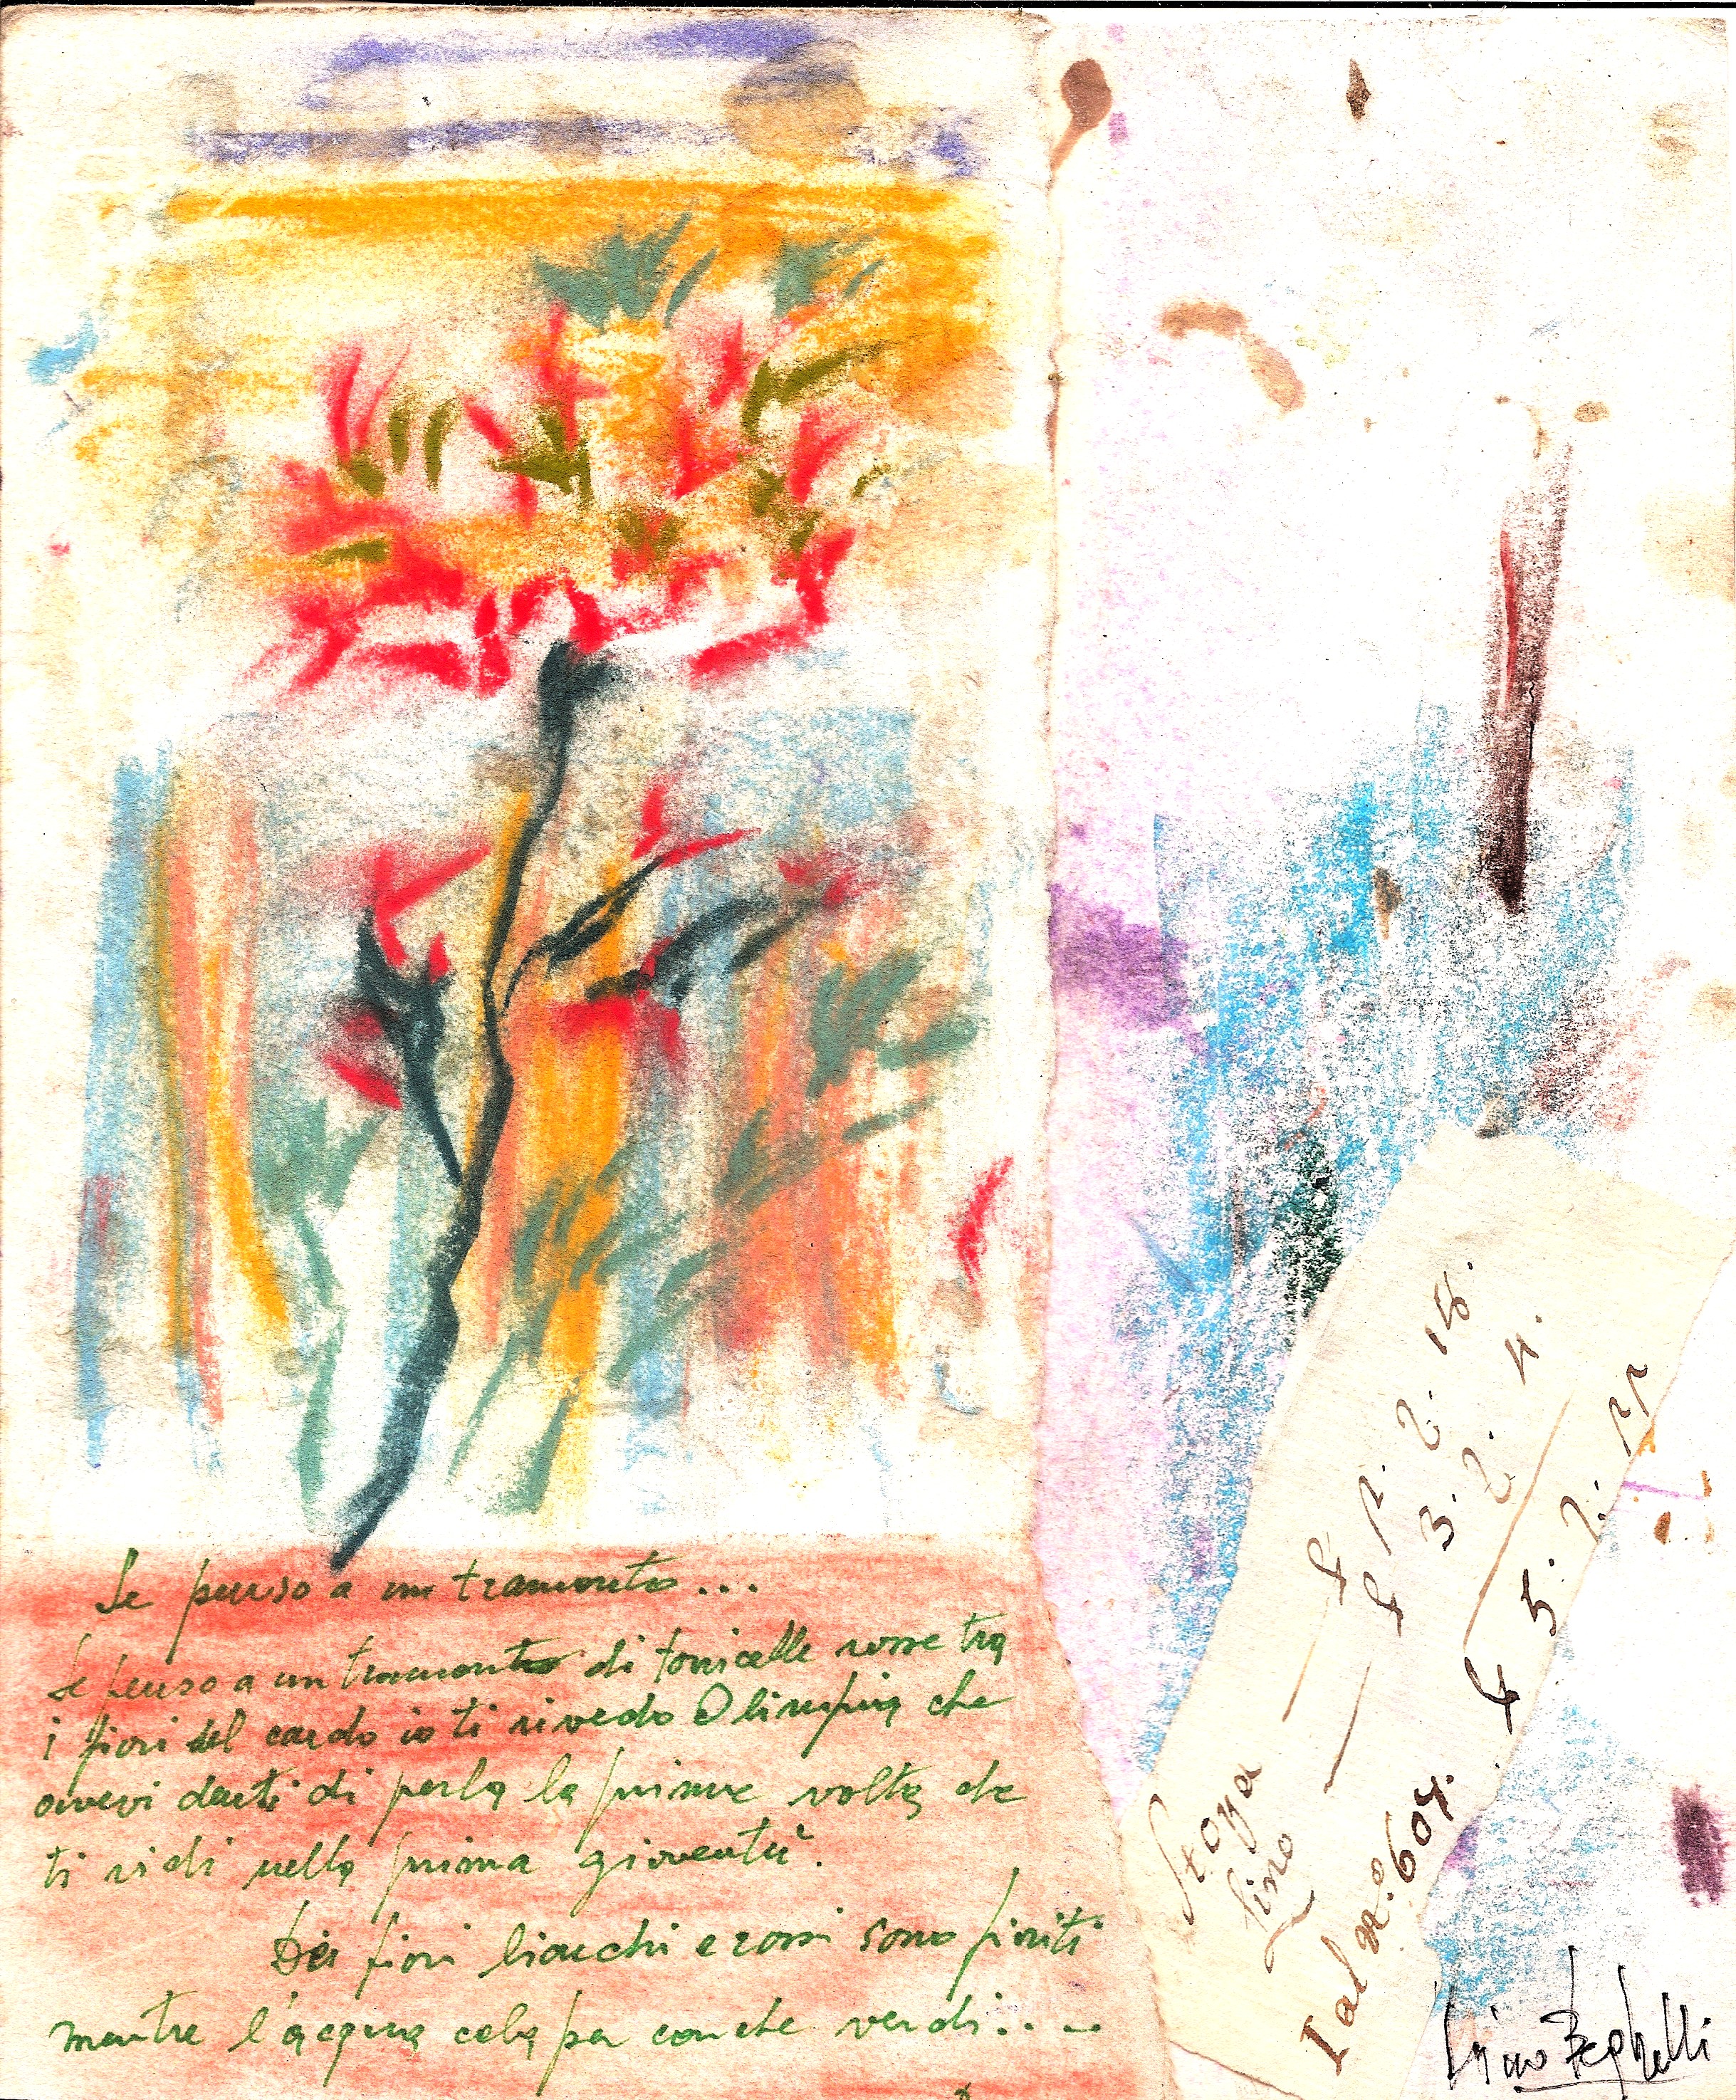 Se penso a un tramonto...
Se penso a un tramonto di fornicelle rosse tra
i fiori del cardo io ti rivedo Olimpia che
avevi denti di perla la prima volta che
ti vidi nella prima gioventù.
Dei fiori bianchi e rossi sono fioriti
mentre l'acqua cola per conche verdi....
Stoya
fino
3. 2. 4.
5. 2.
I al n.º 604.
Lino Beghelli